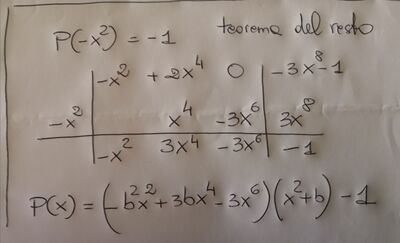 P(-x²) = -1 teorema del resto
-x² +2x⁴ 0 -3x⁸-1
-x² x⁴ -3x⁶ 3x⁸
-x² 3x⁴ -3x⁶ -1
P(x) = (-b²x² + 3bx⁴ - 3x⁶)(x²+b) - 1